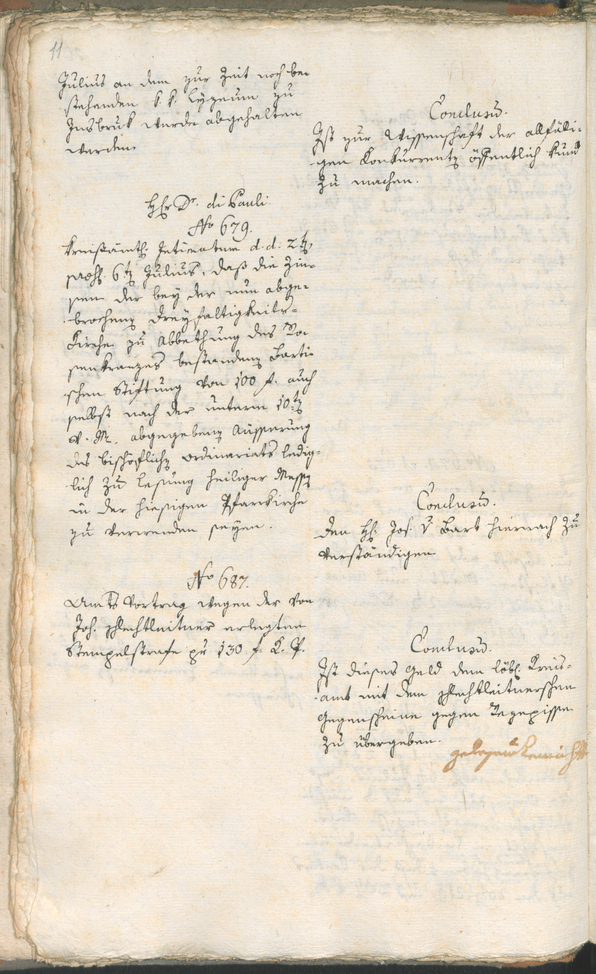 11
Julius an dem zur Zeit noch be-
stehenden k. k. Lyzeum zu
Insbruk werde abgehalten
werden.
Conclusum.
Ist zur Wissenschaft der allfälli-
gen Konkurrenten öffentlich kund
zu machen.
H. Hr. Dr. di Pauli.
No 679.
Kreisamtl. Intimatum d. d. 2ten
praes. 6ten Julius, daß die Zin-
sen der bey der nun abge-
brochenen Dreyfaltigkeits-
Kirche zu Abbethung des Ro-
senkranzes bestandenen Barti-
schen Stiftung von 100 f. auch
selbst nach der unterm 10ten
v. M. abgegebenen Äusserung
des bischöflichen Ordinariats ledig-
lich zu Lesung heiliger Messen
in der hiesigen Pfarrkirche
zu verwenden seyen.
Conclusum.
Den H. Jos. v. Bart hiernach zu
verständigen
No 687.
Amts Vortrag wegen der von
Joh. Schlechtleitner erlegten
Stempelstrafe zu 130 f. R. W.
Conclusum.
Ist dieses Geld dem löbl. Kreis-
amt mit dem Schlechtleitnerschen
Gegenscheine gegen Rezepisse
zu übergeben.